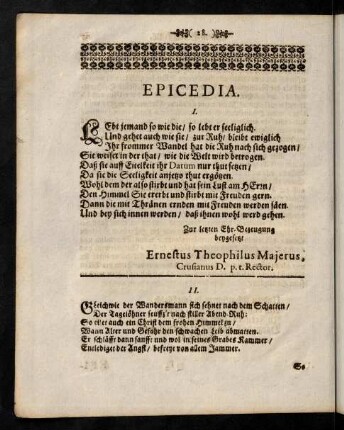 ( 28. )
EPICEDIA.
I.
LEbt jemand so wie die / so lebt er seeliglich.
Und gehet auch wie sie / zur Ruh / bleibt ewiglich
Ihr frommer Wandel hat die Ruh nach sich gezogen /
Sie weiset in der that / wie die Welt wird betrogen.
Daß sie auff Eitelkeit ihr Datum nur thut setzen /
Da sie die Seeligkeit anjetzo thut ergötzen.
Wohl dem der also stirbt und hat sein Lust am HErrn /
Den Himmel Sie ererbt und stirbt mit Freuden gern.
Dann die mit Thränen ernden mit Freuden werden säen.
Und bey sich innen werden / daß ihnen wohl werd gehen.
Zur letzten Ehr-Bezeugung
beygesetzt
Ernestus Theophilus Majerus,
Crusianus D. p. t. Rector.
II.
Gleichwie der Wandersmann sich sehnet nach dem Schatten /
Der Tagelöhner seuffz't nach stiller Abend-Ruh:
So eilet auch ein Christ dem frohen Himmel zu /
Wann Alter und Gefahr den schwachen Leib abmatten.
Er schläfft dann sanfft und wol in seines Grabes Kammer /
Entlediget der Angst / befreyt von allem Jammer.
So